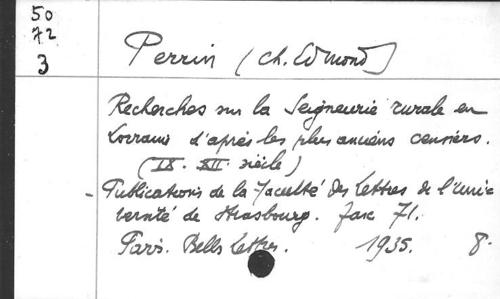 50
72
3
Perrin (Ch. Edmond)
Recherches sur la Seigneurie rurale en
Lorraine d'après les plus anciens censiers.
(IX. XII. siècle)
- Publications de la Faculté des Lettres de l'Uni-
versité de Strasbourg. fasc 71.
Paris. Belles Lettres. 1935. 8.